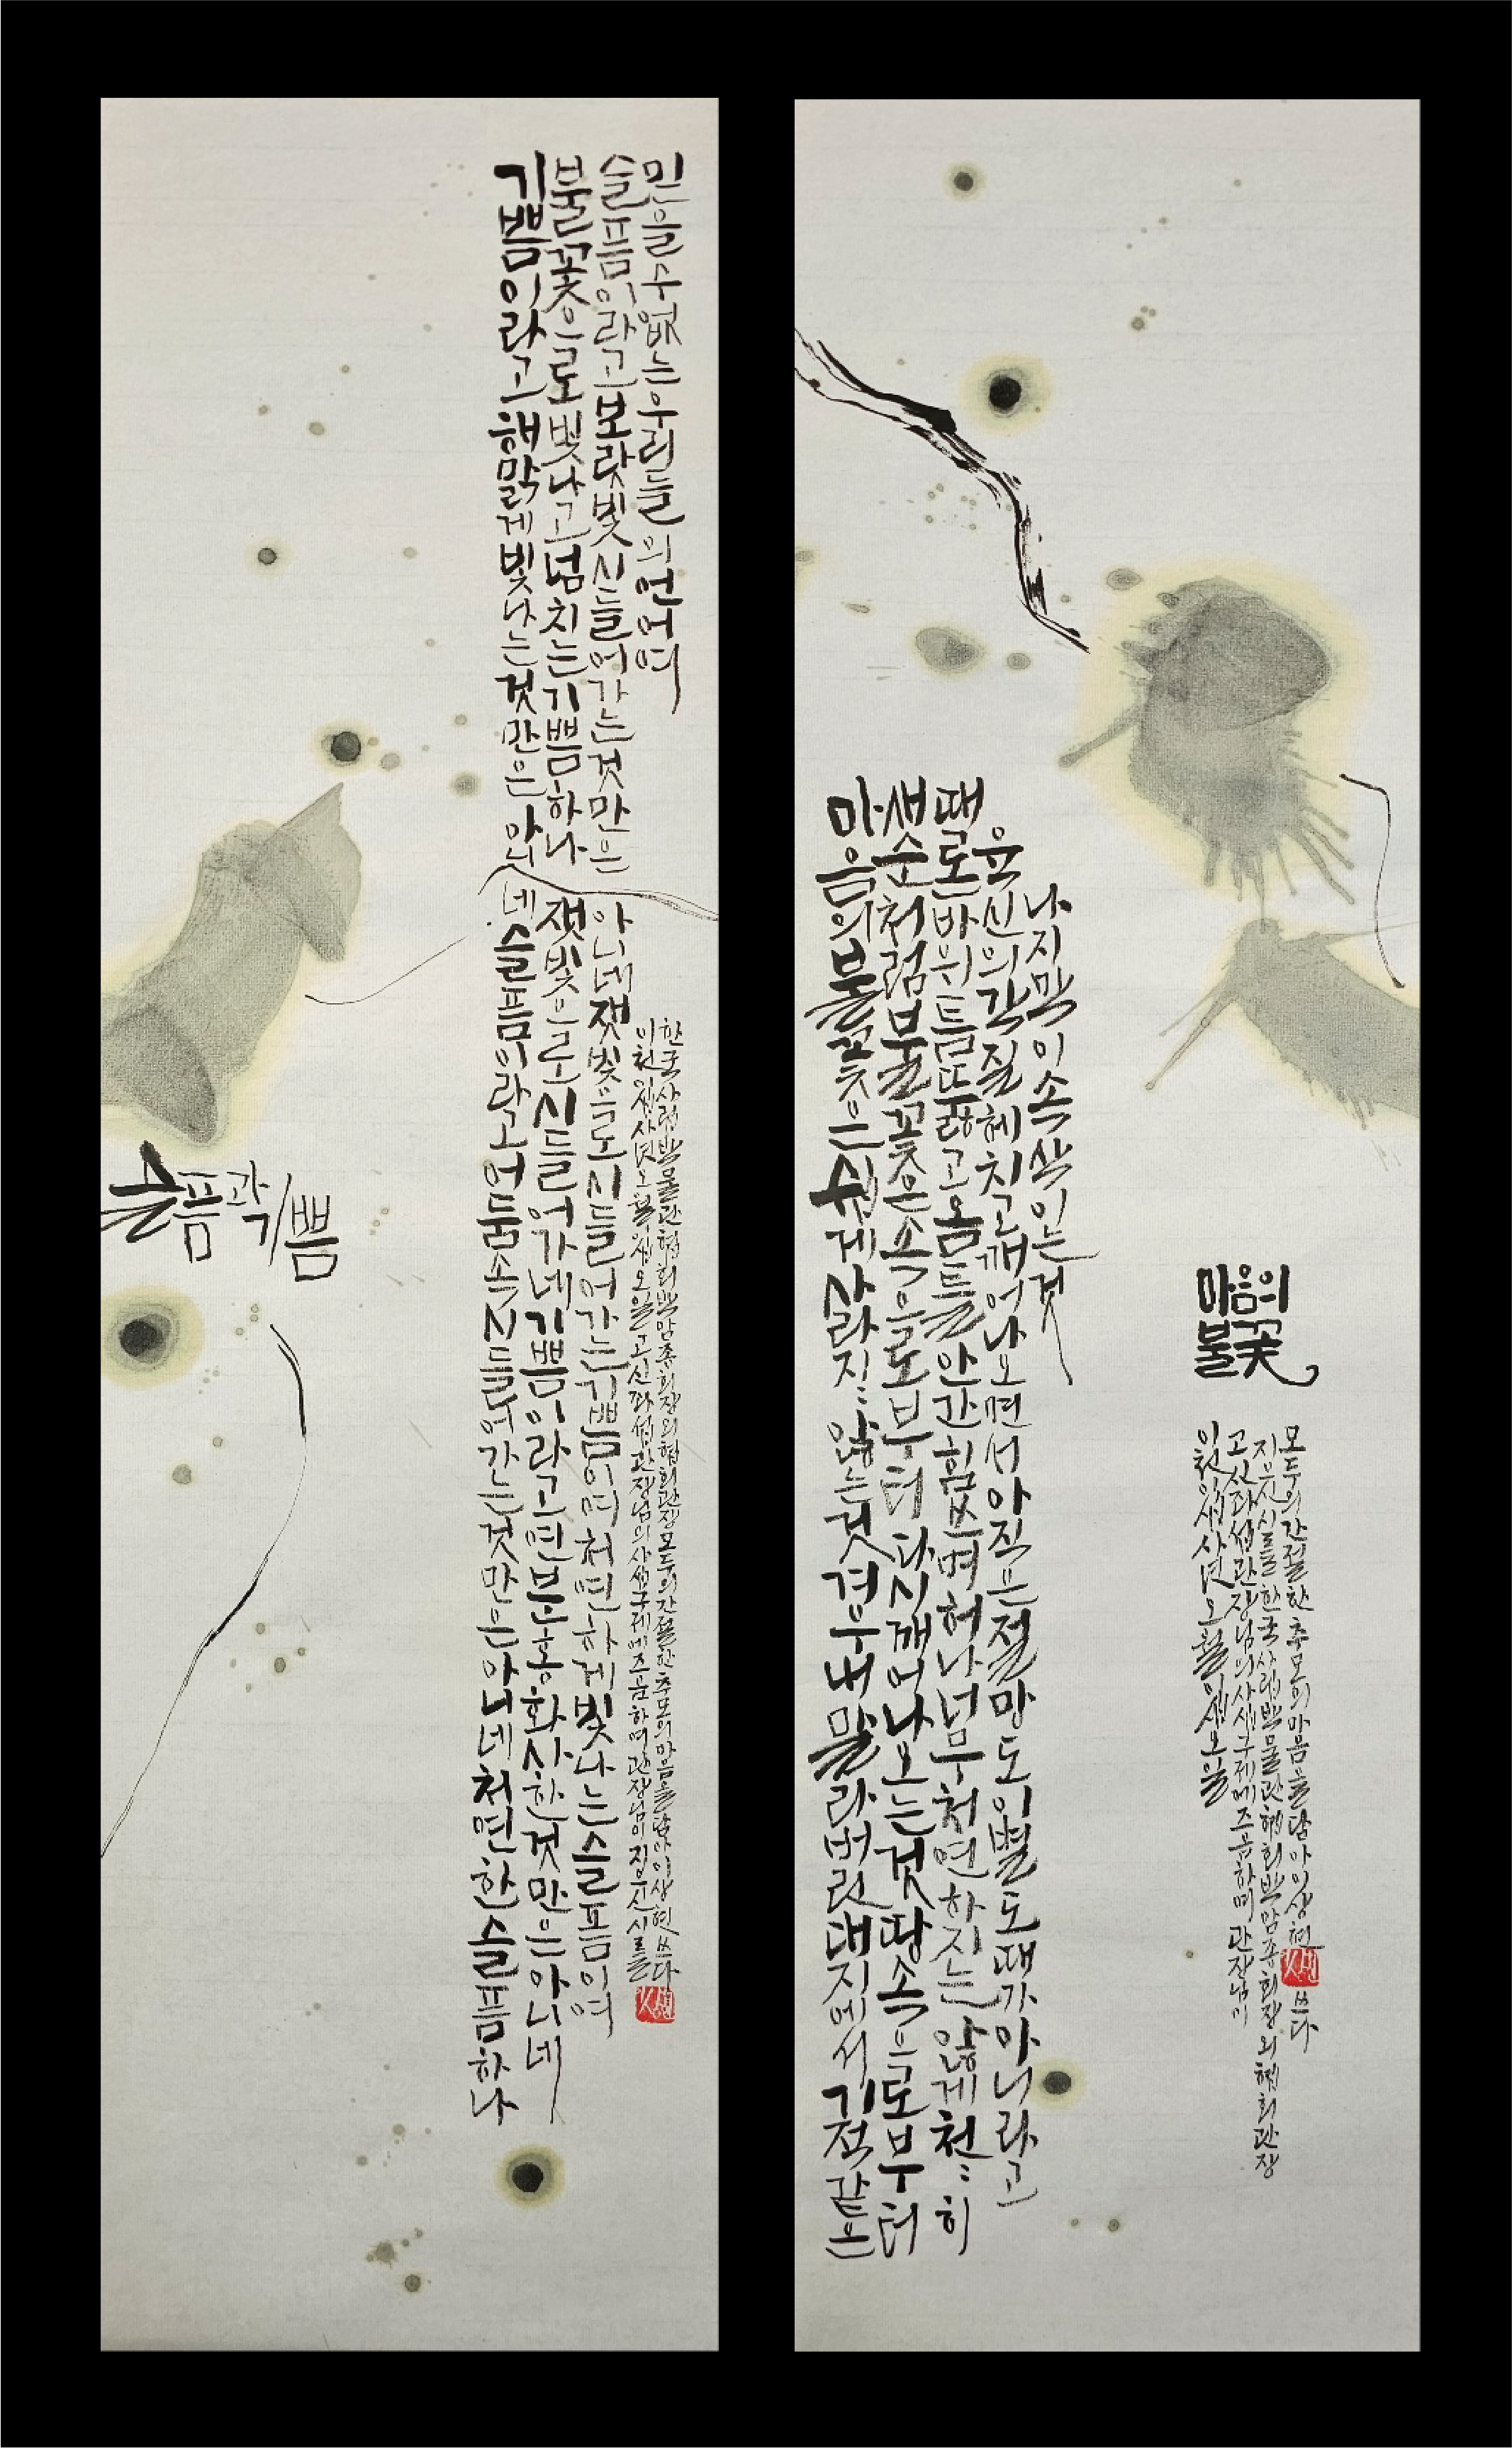 슬픔과 기쁨
기쁨이라고 해맑게 빛나는 것만은 아니네 슬픔이라고 어둠속 시들어가는것만은 아니네 처연한 슬픔하나
불꽃으로 빛나고 넘치는 기쁨하나 잿빛으로 시들어가네 기쁨이라고 연분홍 화사한것만은 아니네
슬픔이라고 보랏빛 시들어가는 것만은 아니네 잿빛으로 시들어가는 기쁨이여 처연하게 빛나는 슬픔이여
믿을 수 없는 우리들의 언어여
이천이십사년 오월 이십오일 고 신좌섭관장님의 사십구제에 즈음하며 관장님이 지으신 시를
한국사립박물관협회 박암종회장외 협회관장 모두의 간절한 추모의 마음을 담아 이상현 쓰다
마음의
불꽃
마음의 불꽃은 쉬게 사라지지 않는것 겨우내 말라버린 대지에서 기적같은
새순처럼 불꽃은 속으로부터 다시 깨어나오는것 땅속으로부터
때론 바위틈 뚫고 옴틀 안간힘쓰며 허나 너무 처연하지는 않게 천천히
육신의 각질 헤치고 깨어나오면서 아직은 절망도 이별도 때가 아니라고
나지막이 속삭이는것
이천이십사년 오월 이십오일
고 신좌섭관장님의 사십구제에 즈음하며 관장님이
지으신 시를 한국사립박물관협회 박암종회장외 협회관장
모두의 간절한 추모의 마음을 담아 이상현 쓰다